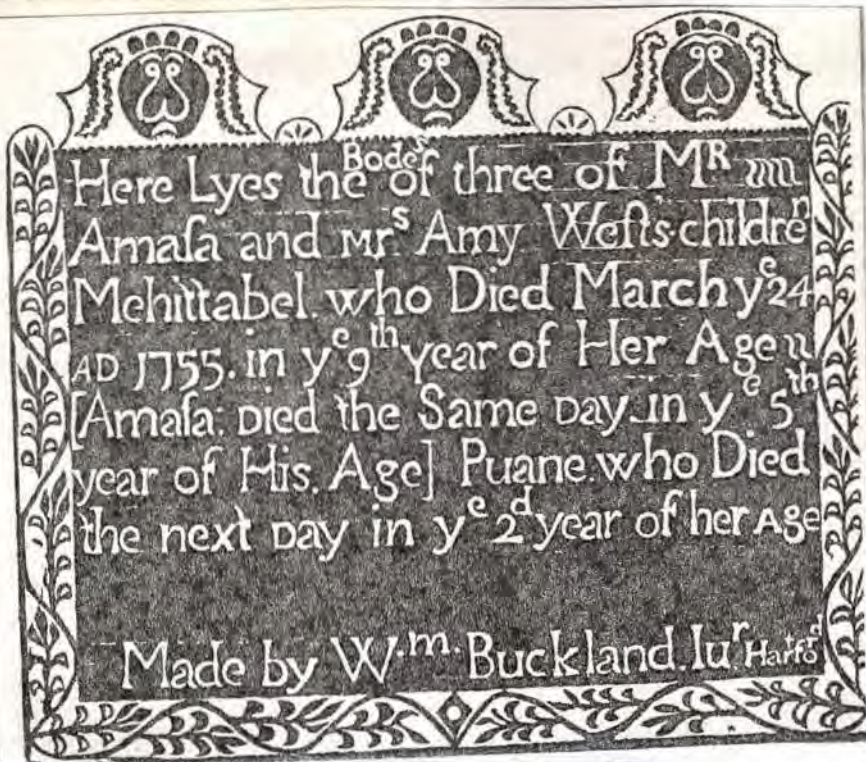 Here Lyes the Bodeˢ of three of Mᴿ
Amaſa and Mrˢ Amy Weſts childreⁿ
Mehittabel. who Died March yᵉ 24
AD 1755. in yᵉ 9ᵗʰ year of Her Age
[Amaſa: Died the Same Day in yᵉ 5ᵗʰ
year of His. Age] Puane. who Died
the next Day in yᵉ 2ᵈ year of her Age
Made by W.m. Buckland. Iuʳ. Hartfoᵈ